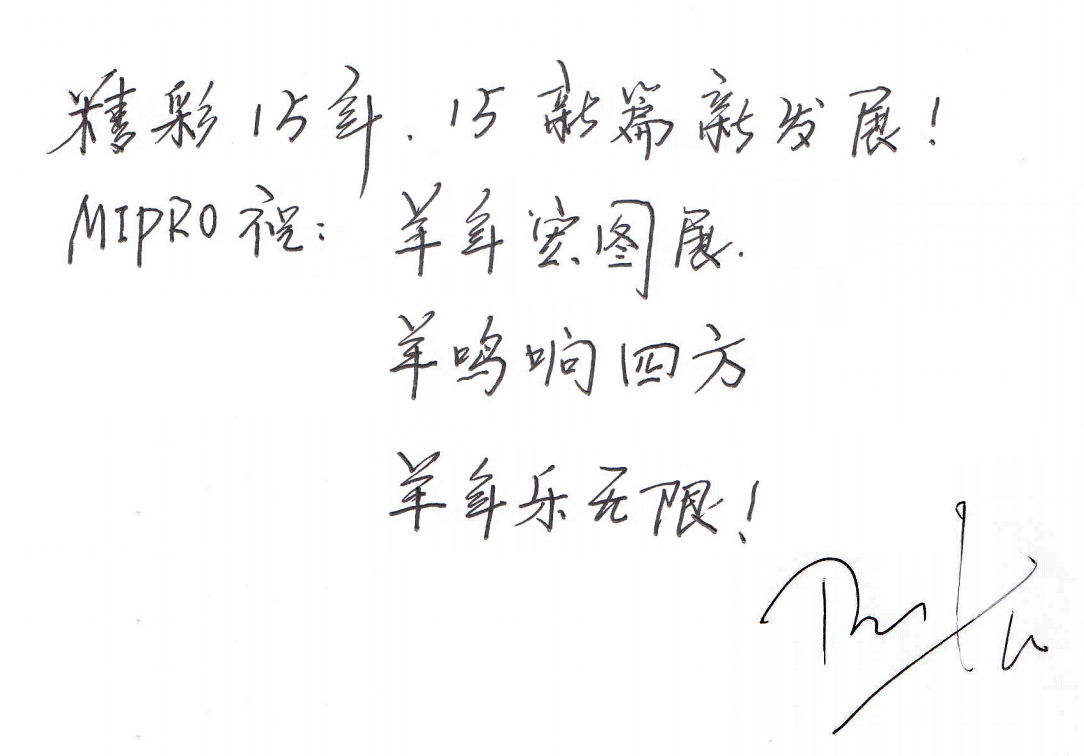 精彩15年.15新篇新发展!
MIPRO祝:羊年宏图展.
羊鸣响四方
羊年乐无限!